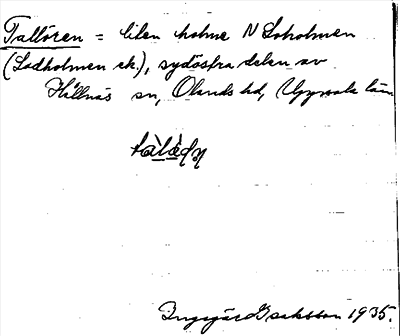 Tallören = liten holme N Loholmen
(Ladholmen ek.), sydöstra delen av
Hållnäs sn, Olands hd, Uppsala län
Ingegärd Isaksson 1935.